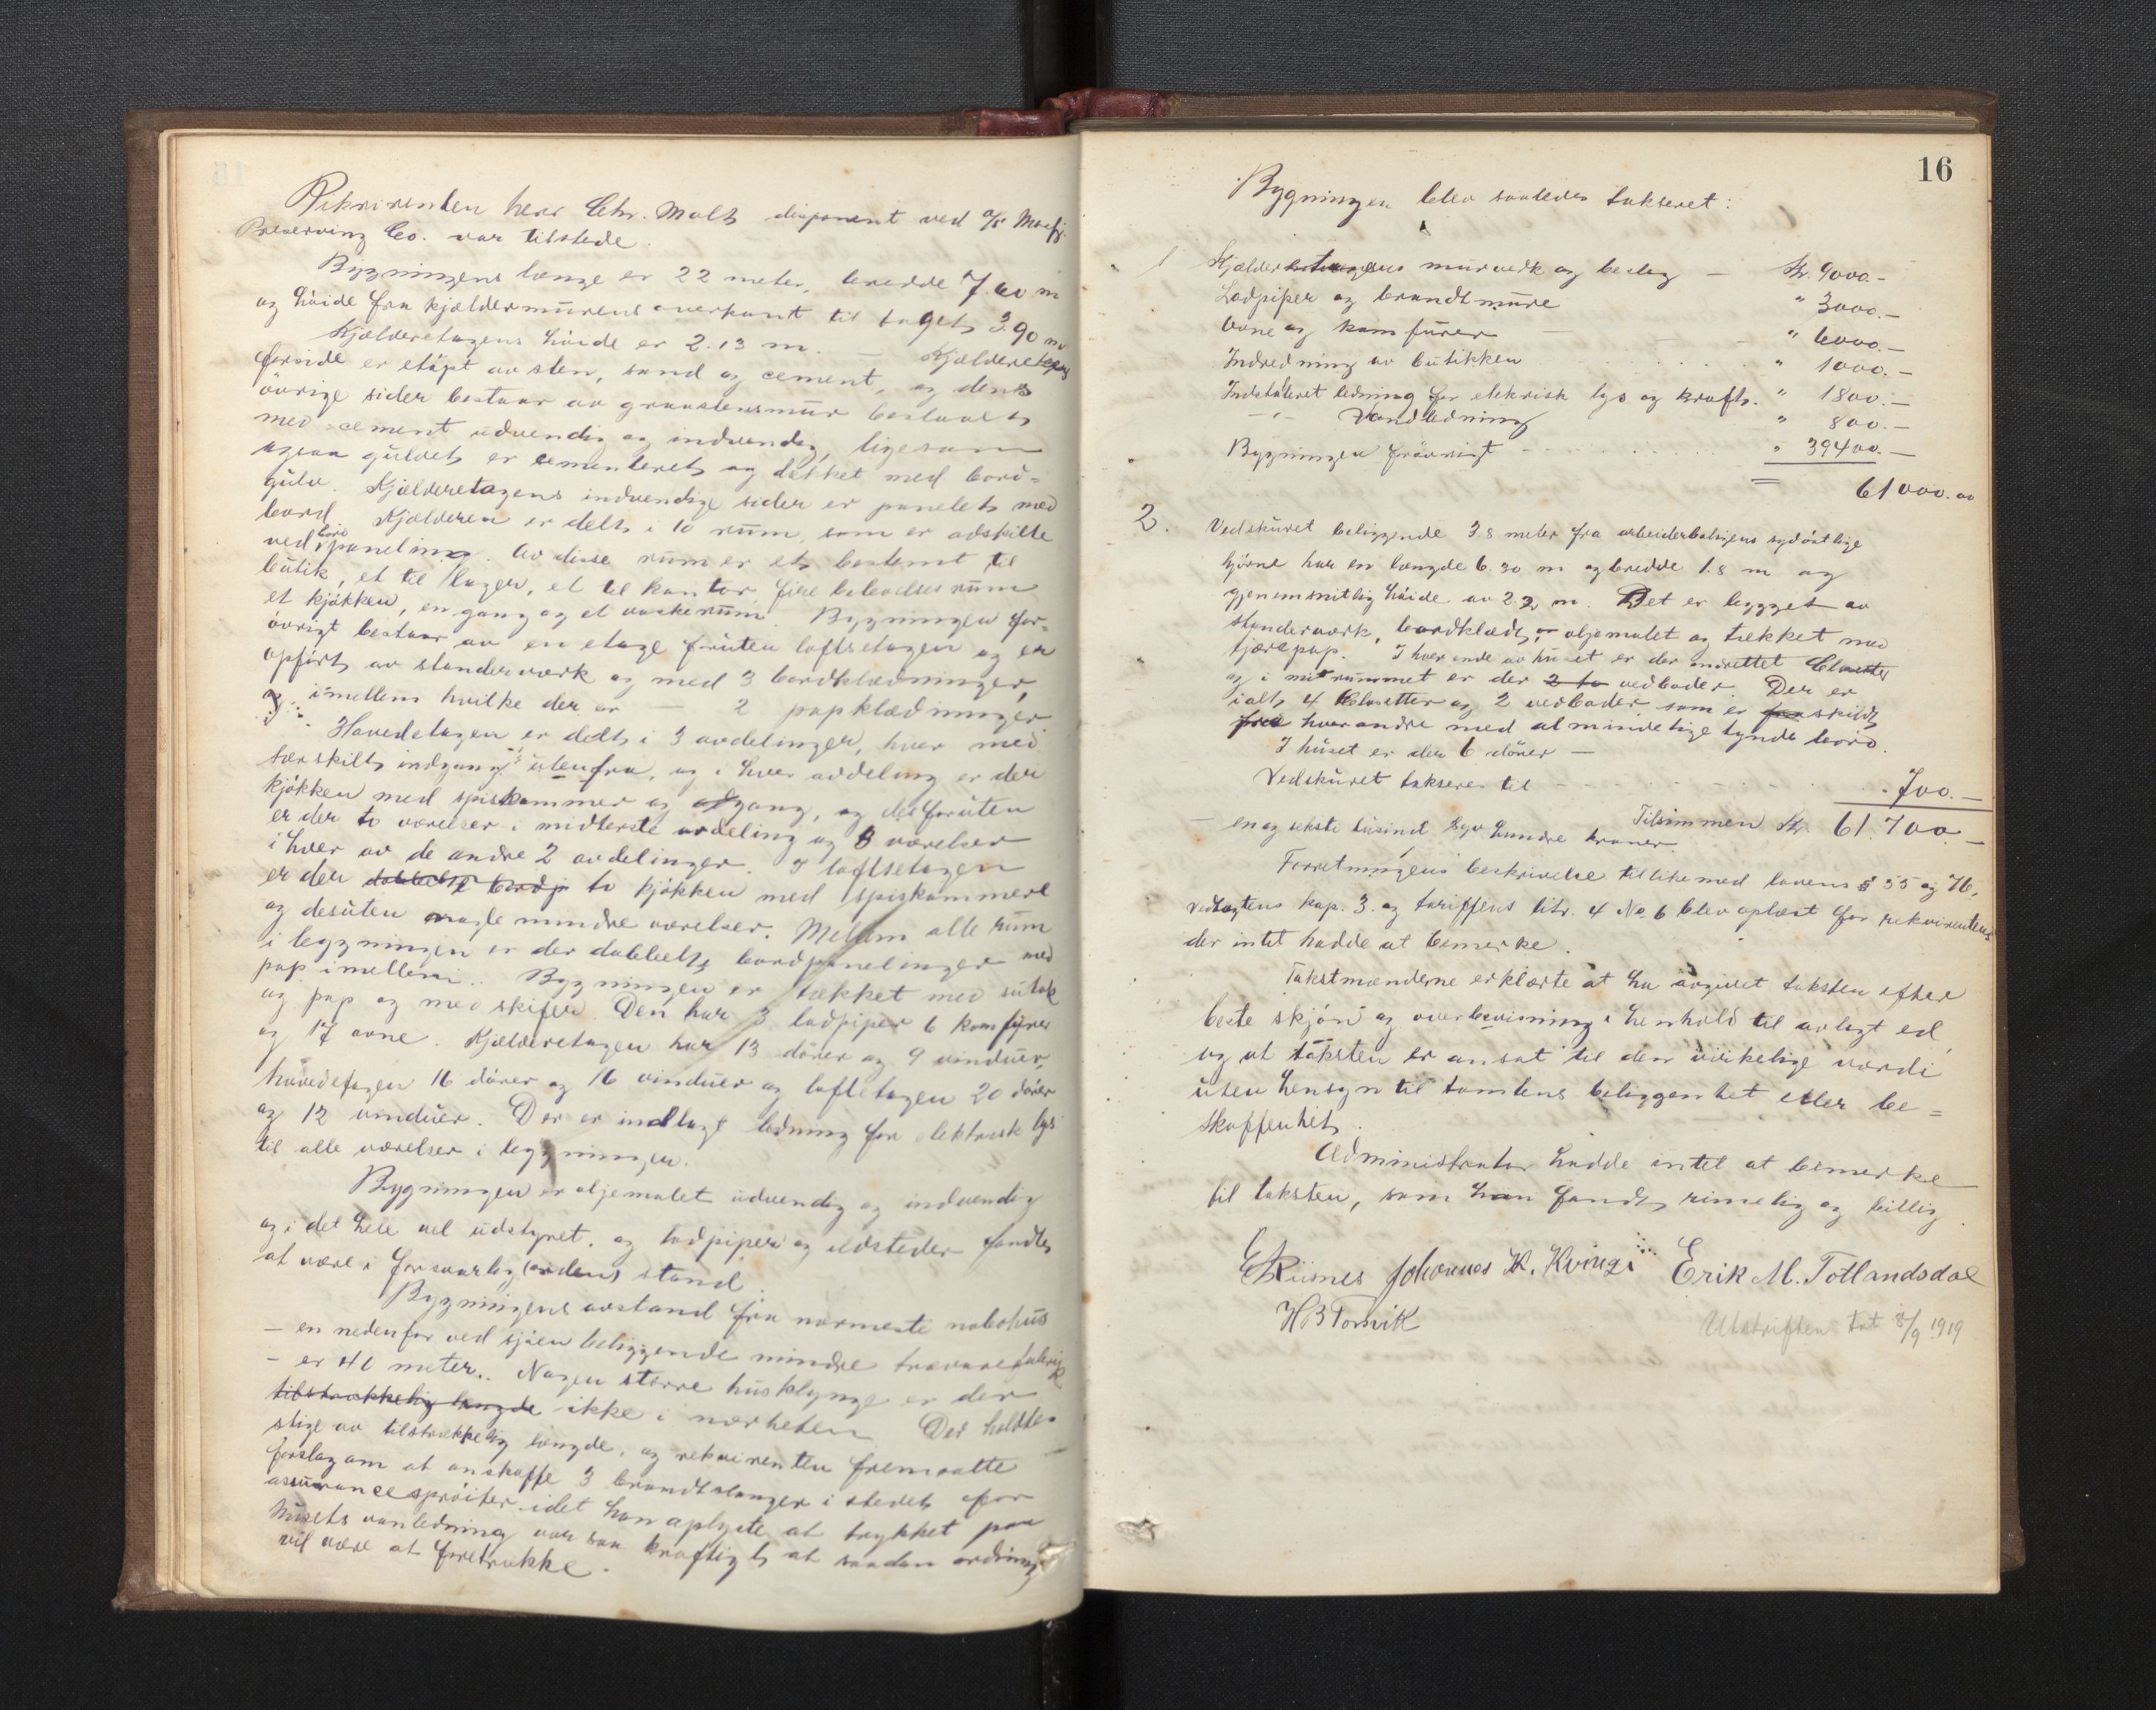 Rekvirenten herr Chr. Malt disponent ved a/s Mosfj.
Preserving Co. var tilstede.
Bygningens længe er 22 meter, bredde 7.60 m
og höide fra kjældermurens overkant til taget 3.90 m
Kjælderetagens höide er 2.13 m. — Kjælderetagens
forside er støpt av sten, sand og cement, og dens
övrige sider bestaar av graastensmur beslaaet
med cement udvendig og indvendig, ligesom
ogsaa gulvet er cementeret og dækket med bord=
gulv. Kjælderetagens indvendige sider er panelet med
bord. Kjælderen er delt i 10 rum, som er adskilte
ved bord paneling. Av disse rum er et bestemt til
butik, et til lager, et til kontor fire beboelses rum
et kjökken, en gang og et vaskerum. Bygningen for=
övrigt bestaar av en etage foruten loftsetagen og er
opfört av standerværk og med 3 bordklædninger,
imellem hvilke der er — 2 papklædninger
Hovedetagen er delt i 3 avdelinger, hver med
særskilt indgang utenfra, og i hver avdeling er der
kjökken med spiskammer og adgang, og desforuten
er der to værelser i midterste avdeling og 3 værelser
i hver av de andre 2 avdelinger. I loftsetagen
er der dobbelte bordp to kjökken med spiskammere
og desuten nogle mindre værelser. Mellem alle rum
i bygningen er der dobbelte bordpanelinger med
pap imellem. Bygningen er tækket med sutak
og pap og med skifer. Den har 3 ladpiper 6 komfyrer
og 17 ovne. Kjælderetagen har 13 dörer og 9 vinduer,
hovedetagen 16 dörer og 16 vinduer og loftetagen 20 dörer
og 12 vinduer. Der er indlagt ledning for elektrisk lys
til alle værelser i bygningen.
Bygningen er oljemalet udvendig og indvendig
og i det hele vel udstyret, og ladpiper og ildsteder fandtes
at være i forsvarlig (orden) stand.
Bygningens avstand fra nærmeste nabohus
— en nedenfor ved sjöen beliggende mindre travarefabrik
— er 40 meter. Nogen större husklynge er der
tilstrækkelig længde ikke i nærheten. Der holdtes
stige av tilstrækkelig længde, og rekvirenten fremsatte
forslag om at anskaffe 3 brandslanger i stedet for
assurancespröiter idet han oplyste at trykket paa
husets vanledning var saa kraftigt at saadan ordning
vil være at foretrække.
16
Bygningen blev saaledes takseret:
1 Kjælderetagens murverk og beslag — Kr. 9000.—
Ladpiper og brandtmure " 3000.—
Ovne og komfurer — " 6000.—
Indredning av butikken " 1000.—
Indstaleret ledning for elektrisk lys og kraft. " 1800.—
—"— Vandledning " 800.—
Bygningen fraövrigt " 39400.—
61000.00
2. Vedskuret beliggende 3.8 meter fra arbeiderboligens sydöstlige
hjörne har en længde 6.30 m og bredde 1.8 m og
gjenemsnitlig höide av 2.2 m. Det er bygget av
standerværk, bordklædt, oljemalet og tækket med
tjærepap. I hver ende av huset er der indrettet Closetter
og i mitrummet er der 2 to vedboder. Der er
ialt 4 Closetter og 2 vedboder som er fra skildt
fra hverandre med almindelige tynde bord.
I huset er der 6 dörer —
Vedskuret takseres til . 700.—
Tilsammen Kr. 61.700.—
— en og seksti tusind syv hundre kroner.
Forretningens beskrivelse tillikemed lovens § 55 og 76,
vedtægtens kap. 3. og tariffens litr. 4 No 6 blev oplæst for rekvirenten
der intet hadde at bemerke.
Takstmænderne erklærte at ha avgivet taksten efter
beste skjön og overbevisning i henhold til avlagt ed,
og at taksten er ansat til den virkelige værdi
uten hensyn til tomtens beliggenhet eller be=
skaffenhet.
Administrator hadde intet at bemerke
til taksten, som han fandt rimelig og billig.
E Riisnes Johannes K. Kvinge Erik M. Totlandsdal
H B Tomik
Utskriften tat 8/9 1919